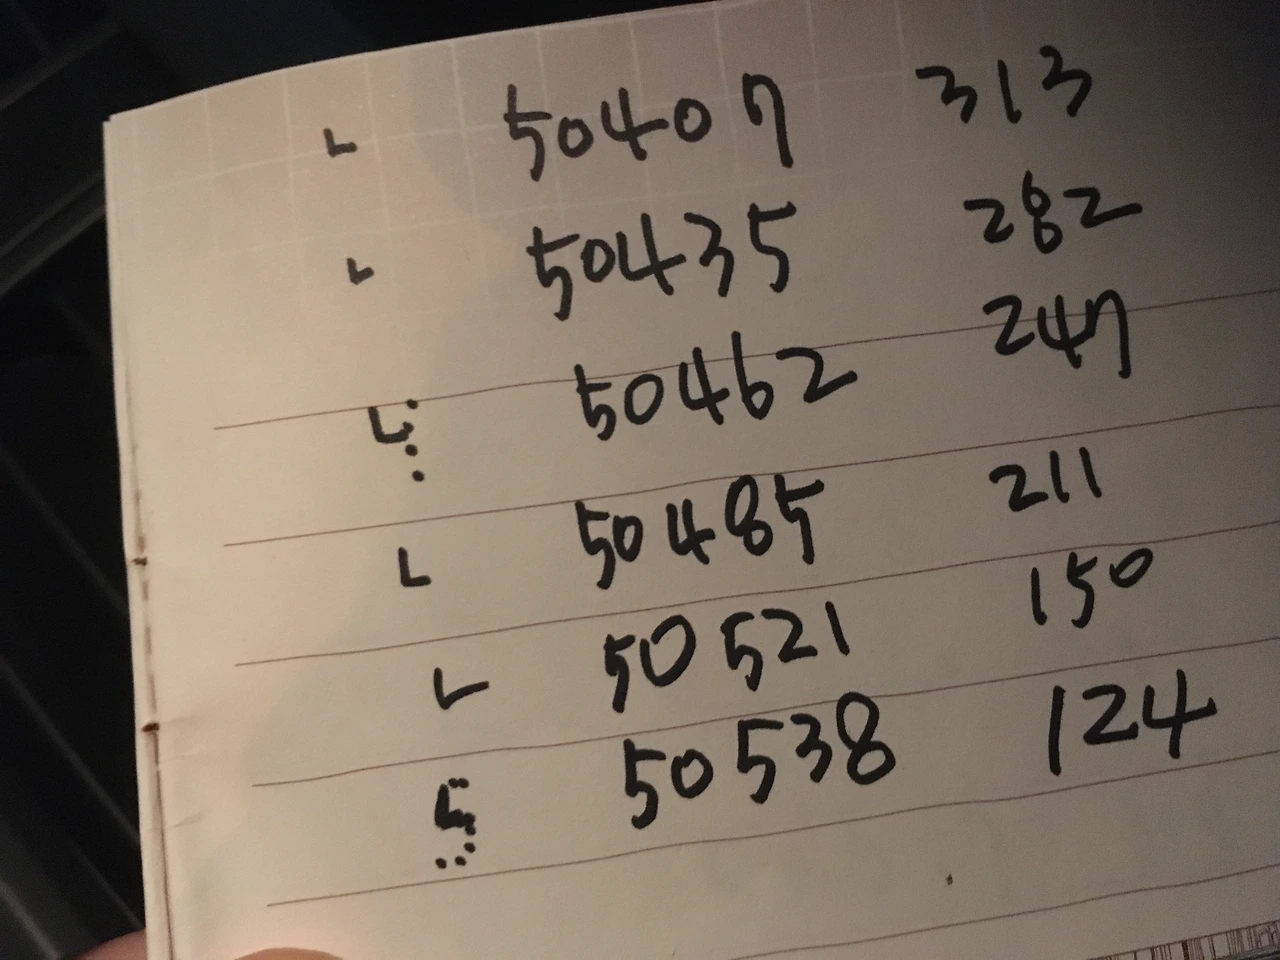 ㄴ 50407 313
ㄴ 50435 282
ㄴ 50462 247
ㄴ 50485 211
ㄴ 50521 150
ㄴ 50538 124